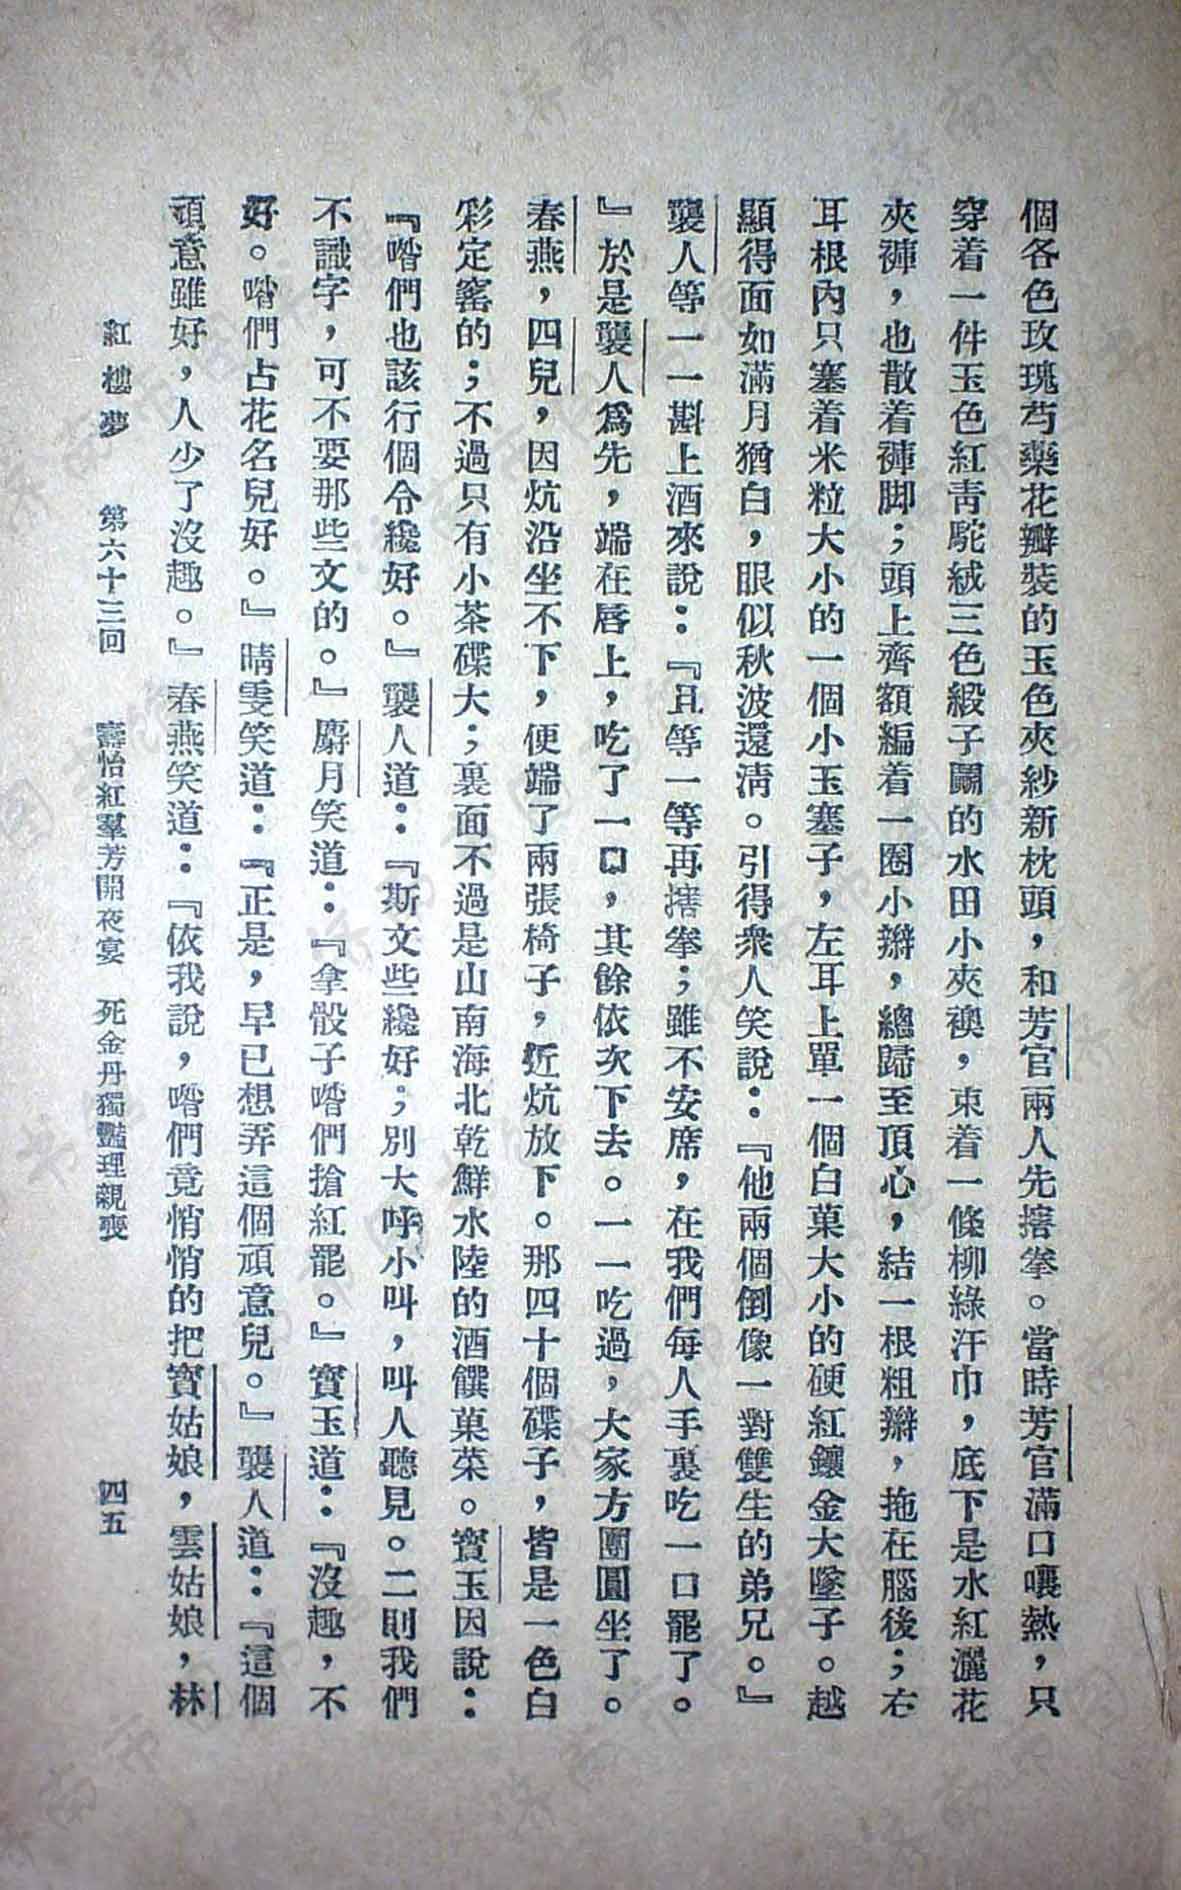 個各色玫瑰芍藥花瓣裝的玉色夾紗新枕頭，和芳官兩人先搳拳。當時芳官滿口嚷熱，只
穿着一件玉色紅青駝絨三色緞子鬬的水田小夾襖，束着一條柳綠汗巾，底下是水紅灑花
夾褲，也散着褲脚；頭上齊額編着一圈小辮，總歸至頂心，結一根粗辮，拖在腦後；右
耳根內只塞着米粒大小的一個小玉塞子，左耳上單一個白菓大小的硬紅鑲金大墜子。越
顯得面如滿月猶白，眼似秋波還淸。引得衆人笑說：『他兩個倒像一對雙生的弟兄。』
襲人等一一斟上酒來說：『且等一等再搳拳；雖不安席，在我們每人手裏吃一口罷了。
』於是襲人爲先，端在唇上，吃了一口，其餘依次下去。一一吃過，大家方團圓坐了。
春燕，四兒，因炕沿坐不下，便端了兩張椅子，近炕放下。那四十個碟子，皆是一色白
彩定窰的；不過只有小茶碟大；裏面不過是山南海北乾鮮水陸的酒饌菓菜。寶玉因說：
『喒們也該行個令纔好。』襲人道：『斯文些纔好；別大呼小叫，叫人聽見。二則我們
不識字，可不要那些文的。』麝月笑道：『拿骰子喒們搶紅罷。』寶玉道：『沒趣，不
好。喒們占花名兒好。』晴雯笑道：『正是，早已想弄這個頑意兒。』襲人道：『這個
頑意雖好，人少了沒趣。』春燕笑道：『依我說，喒們竟悄悄的把寶姑娘，雲姑娘，林
紅樓夢　第六十三回　壽怡紅羣芳開夜宴　死金丹獨豔理親喪　四五